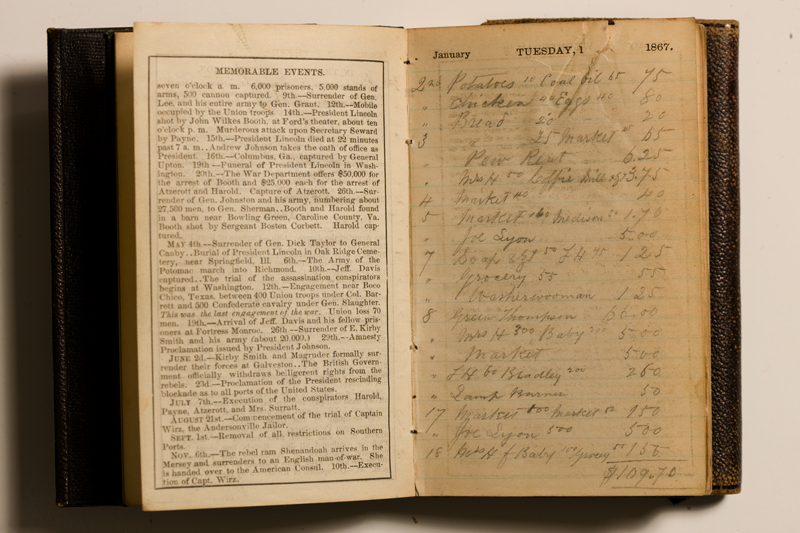 MEMORABLE EVENTS.
seven o'clock a. m. 6,000 prisoners, 5,000 stands of
arms, 500 cannon captured. 9th.—Surrender of Gen.
Lee, and his entire army to Gen. Grant. 12th.—Mobile
occupied by the Union troops. 14th.—President Lincoln
shot by John Wilkes Booth, at Ford's theater, about ten
o'clock p. m. Murderous attack upon Secretary Seward
by Payne. 15th.—President Lincoln died at 22 minutes
past 7 a. m.. Andrew Johnson takes the oath of office as
President. 16th.—Columbus, Ga., captured by General
Upton. 19th.—Funeral of President Lincoln in Wash-
ington. 20th.—The War Department offers $50,000 for
the arrest of Booth and $25,000 each for the arrest of
Atzerott and Harold. Capture of Atzerott. 26th.—Sur-
render of Gen. Johnston and his army, numbering about
27,500 men, to Gen. Sherman..Booth and Harold found
in a barn near Bowling Green, Caroline County, Va.
Booth shot by Sergeant Boston Corbett. Harold cap-
tured.
MAY 4th.—Surrender of Gen. Dick Taylor to General
Canby..Burial of President Lincoln in Oak Ridge Ceme-
tery, near Springfield, Ill. 6th.—The Army of the
Potomac march into Richmond. 10th.—Jeff. Davis
captured..The trial of the assassination conspirators
begins at Washington. 12th.—Engagement near Boco
Chico, Texas, between 400 Union troops under Col. Bar-
rett and 500 Confederate cavalry under Gen. Slaughter.
This was the last engagement of the war. Union loss 70
men. 19th.—Arrival of Jeff. Davis and his fellow pris-
oners at Fortress Monroe. 26th.—Surrender of E. Kirby
Smith and his army (about 20,000.) 29th.—Amnesty
Proclamation issued by President Johnson.
JUNE 2d.—Kirby Smith and Magruder formally sur-
render their forces at Galveston..The British Govern-
ment officially withdraws belligerent rights from the
rebels. 23d.—Proclamation of the President rescinding
blockade as to all ports of the United States.
JULY 7th.—Execution of the conspirators Harold,
Payne, Atzerott, and Mrs. Surratt.
AUGUST 21st.—Commencement of the trial of Captain
Wirz, the Andersonville Jailor.
SEPT. 1st.—Removal of all restrictions on Southern
Ports.
NOV. 6th.—The rebel ram Shenandoah arrives in the
Mersey and surrenders to an English man-of-war. She
is handed over to the American Consul. 10th.—Execu-
tion of Capt. Wirz.
January TUESDAY, 1 1867.
2nd Potatoes 10 Coal Oil 65 75
" Chicken 40 Eggs 40 80
" Bread 20 20
3 " 25 Market 65
" Pew Rent 6.25
" Mrs H 50 Coffee Mill 3.75
4 Market 40 40
5 Market Medicine 1.70
" Joe Lyon 5.00
7 Soap 50 J H 1 25
" Grocery 55 55
" Washerwooman 1 25
8 Green Thompson 66.00
" Mrs H 300 Baby 200 5 00
" Market 5 00
" J H 60 Bradley 200 2 60
" Lamp Burner 50
17 Market Market 9 50
" Joe Lyon 5 00 5 00
18 Mrs H f Baby 100 Grocery 1 55
$109.70